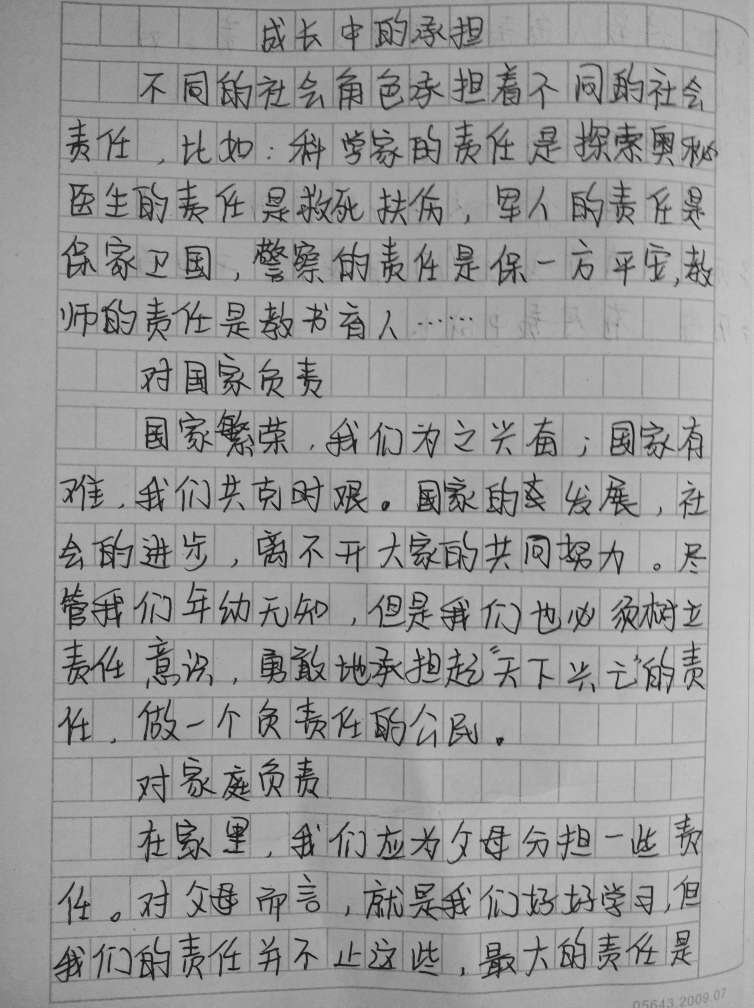 成长中的承担
不同的社会角色承担着不同的社会
责任，比如：科学家的责任是探索奥秘
医生的责任是救死扶伤，军人的责任是
保家卫国，警察的责任是保一方平安，教
师的责任是教书育人……
对国家负责
国家繁荣，我们为之兴奋；国家有
难，我们共克时艰。国家的发展，社
会的进步，离不开大家的共同努力。尽
管我们年幼无知，但是我们也必须树立
责任意识，勇敢地承担起“天下兴亡”的责
任，做一个负责任的公民。
对家庭负责
在家里，我们应为父母分担一些责
任。对父母而言，就是我们好好学习，但
我们的责任并不止这些，最大的责任是
05643.2009.07